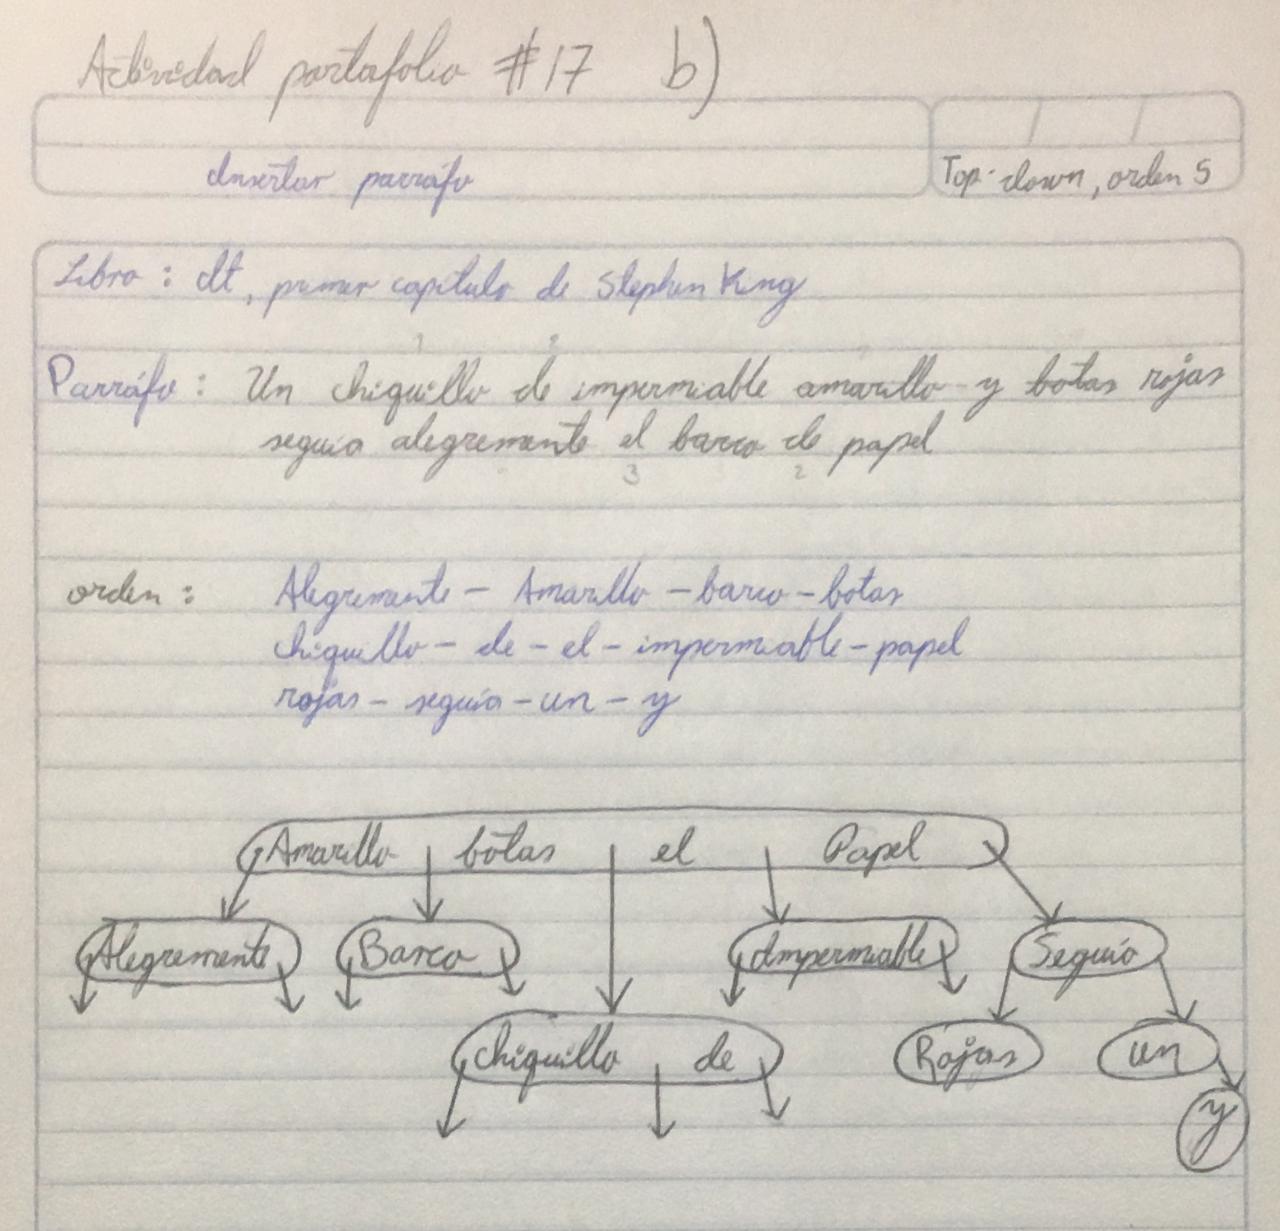 Actividad portafolio #17 b)
Insertar parráfo
Top-down, orden 5
Libro: It, primer capítulo de Stephen King
1 2
Parráfo: Un chiquillo de impermiable amarillo y botas rojas
seguía alegremente el barco de papel
3 2
orden: Alegremente - Amarillo - barco - botas
chiquillo - de - el - impermiable - papel
rojas - seguía - un - y
Amarillo botas el Papel
Alegremente Barco Impermiable Seguía
chiquillo de Rojas un
y